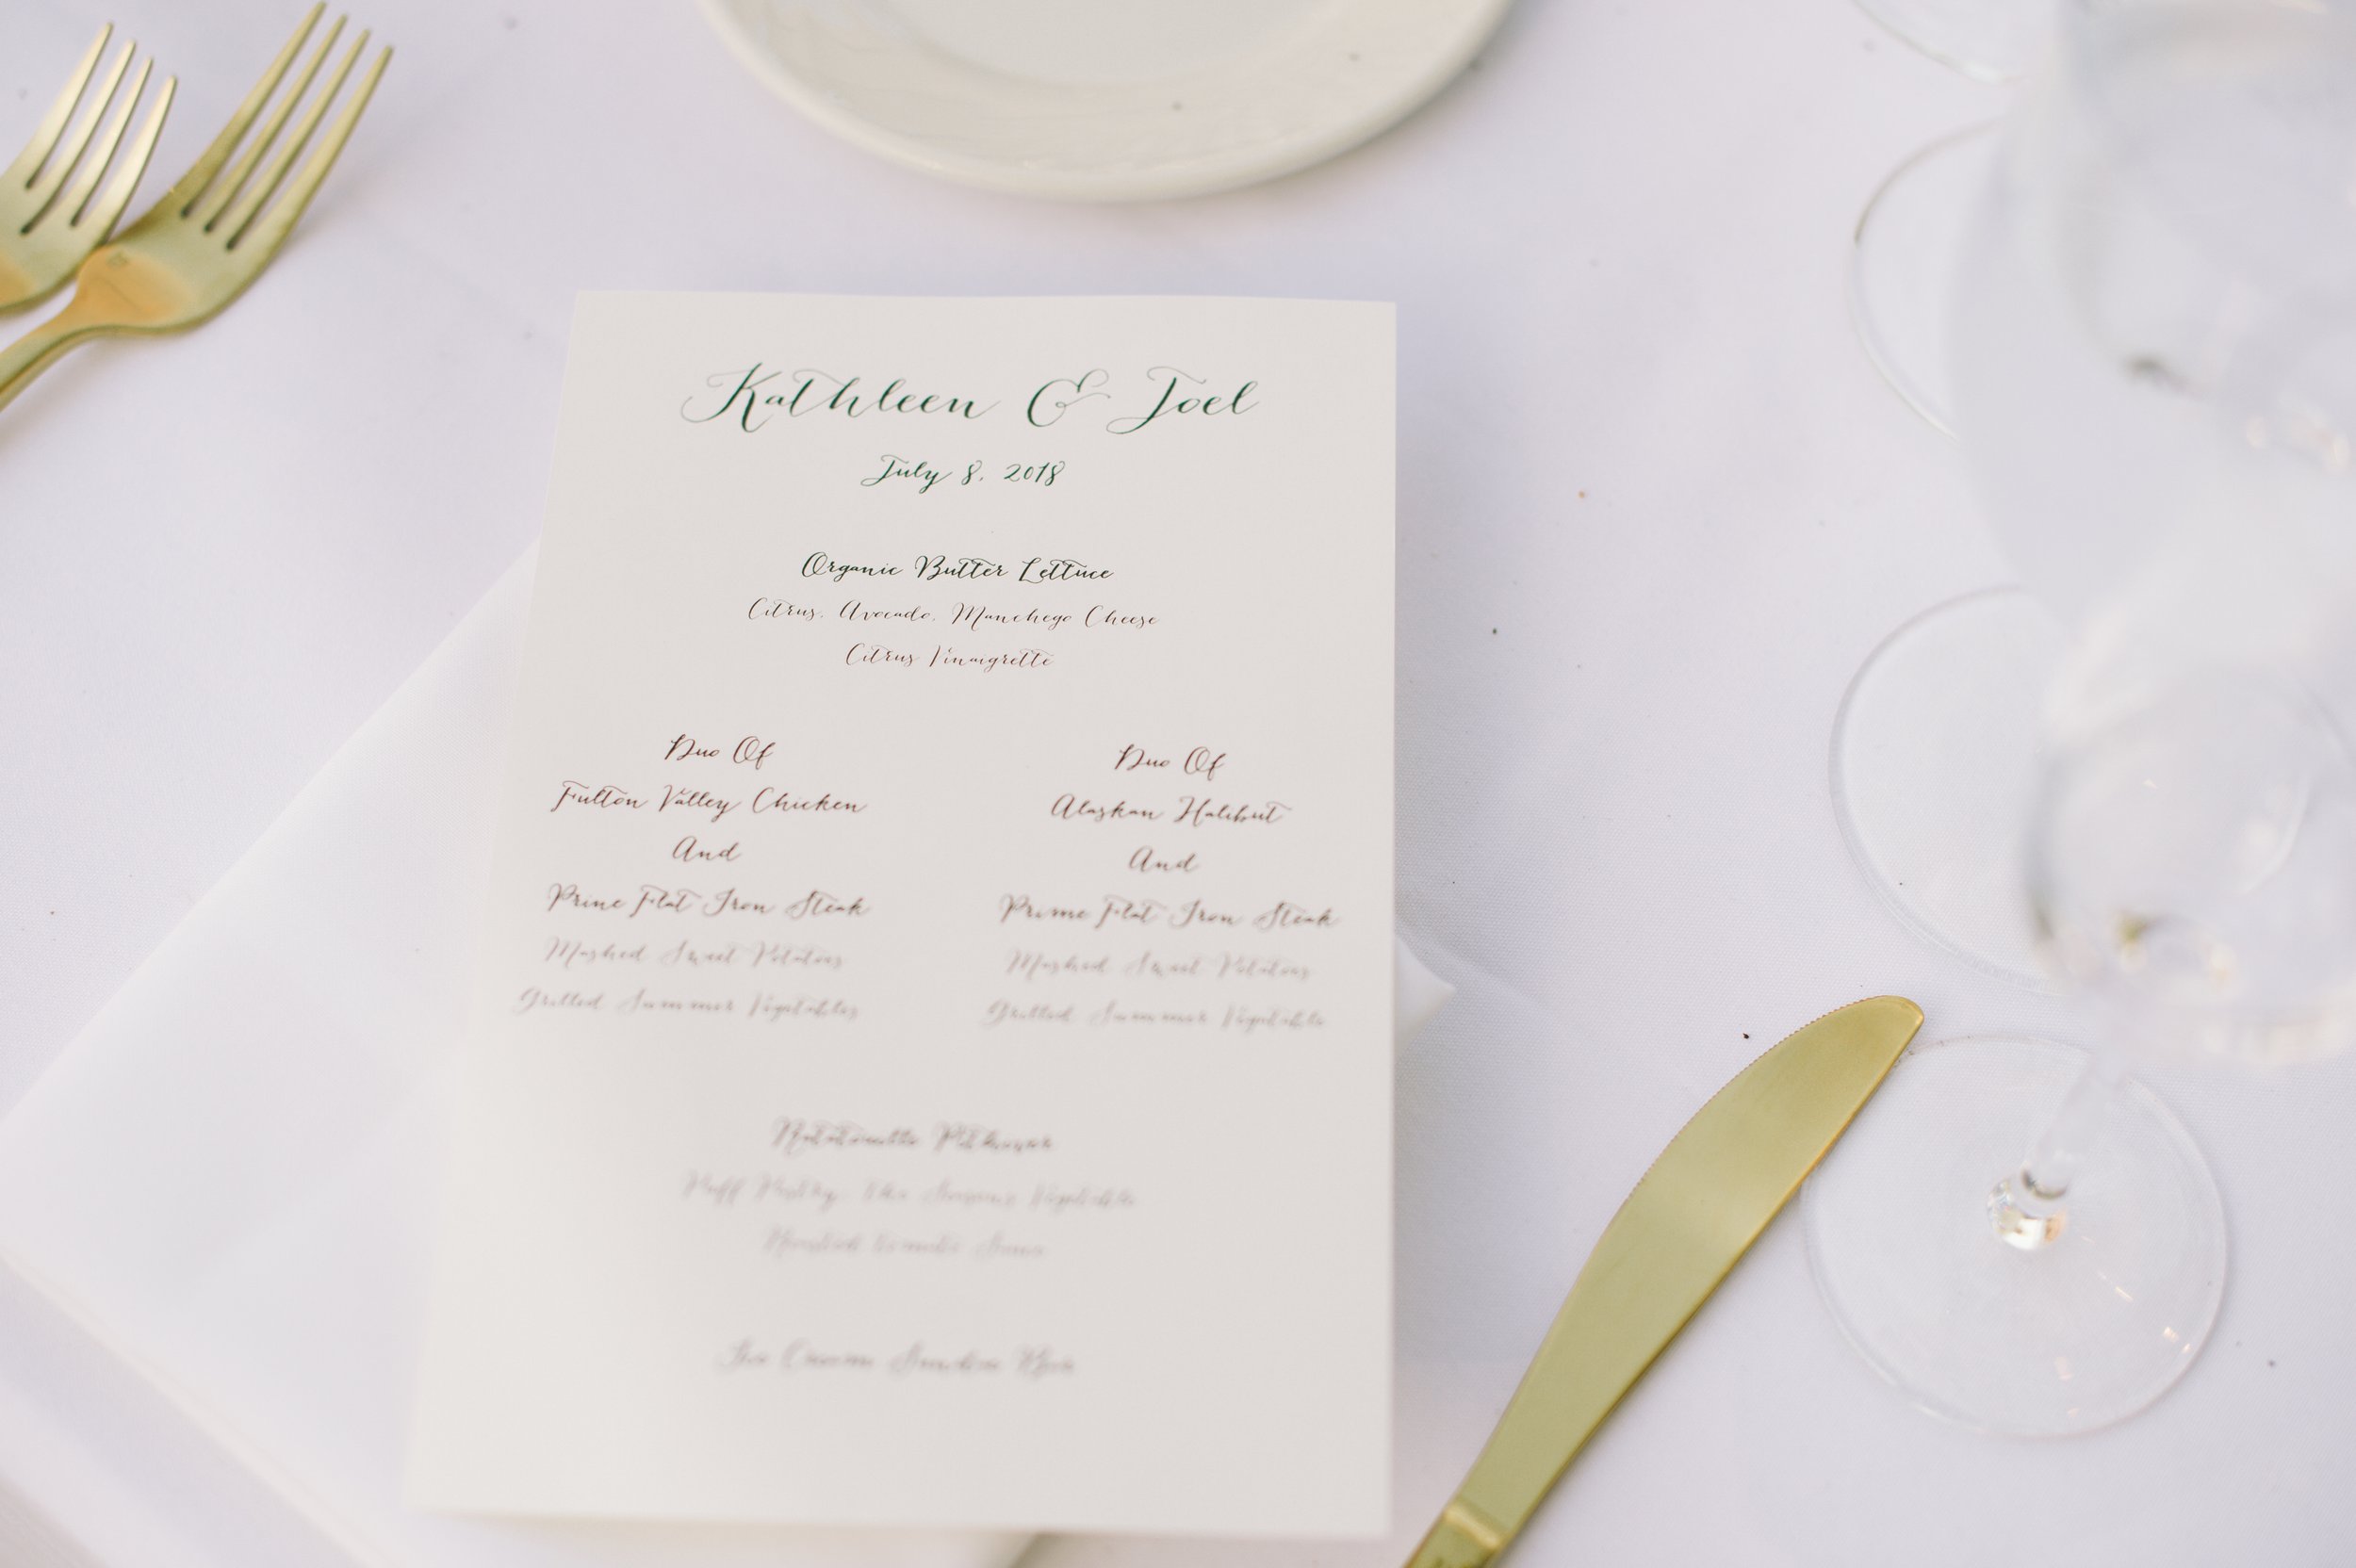 Kathleen & Joel
July 8, 2018
Organic Butter Lettuce
Citrus, Avocado, Manchego Cheese
Citrus Vinaigrette
Duo Of
Fulton Valley Chicken
And
Prime Flat Iron Steak
Mashed Sweet Potatoes
Grilled Summer Vegetables
Duo Of
Alaskan Halibut
And
Prime Flat Iron Steak
Mashed Sweet Potatoes
Grilled Summer Vegetables
Puff Pastry, Vegetables
Ice Cream Sundae Bar